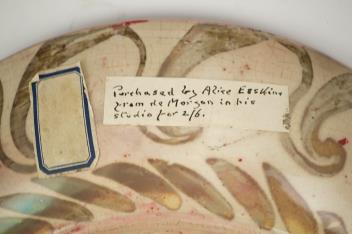 Purchased by Alice Erskine
from de Morgan in his
studio for 2/6.